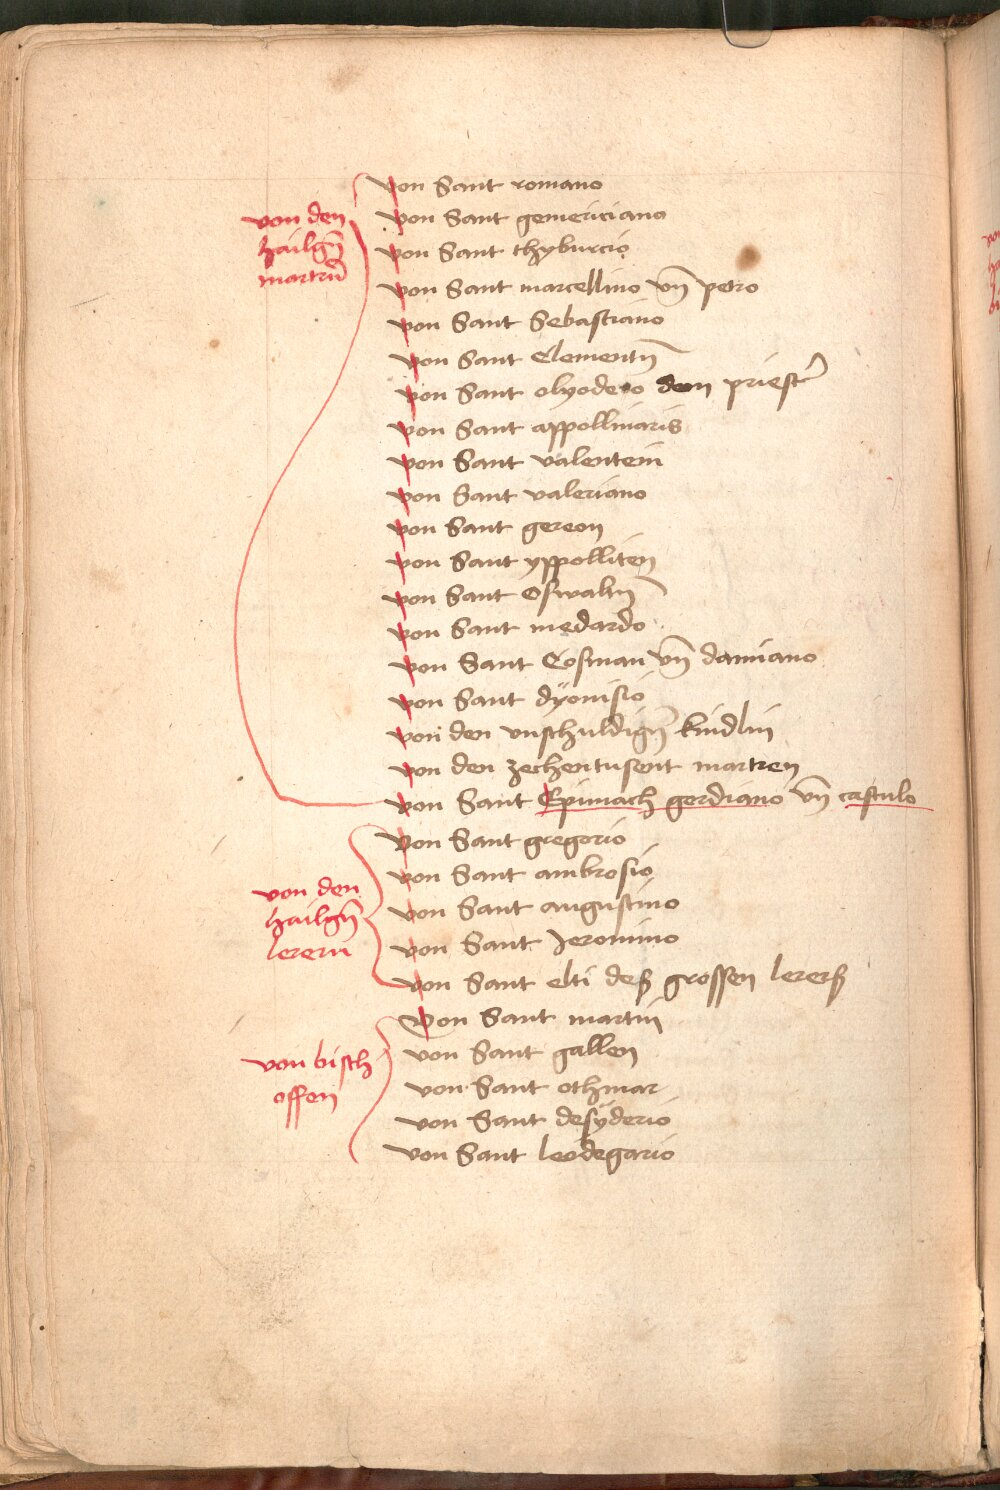 von den
hailgn̄
martrn̄
von Sant romano
von Sant gemericiano
von Sant thyburcio
von Sant marcellino vn̄ petro
von Sant Sebastiano
von Sant Clementn̄
von Sant olyodero dem priest͛
von Sant appollinaris
von Sant valentein
von Sant valeriano
von Sant gereon
von Sant yppolliten
von Sant Oswaltn̄
von Sant medardo
von Sant Cosman vn̄ damiano
von Sant dyonisio
von den vnschuldign̄ kindlin
von den zechentusent martren
von Sant Epimach gordiano vn̄ castulo
von den
hailgn̄
lerern
von Sant gregorio
von Sant ambrosio
von Sant augustino
von Sant Jeronimo
von Sant elti deß grossen lererß
von bisch
offen
von Sant martin
von Sant gallen
von Sant othmar
von Sant desÿderio
von Sant leodegario